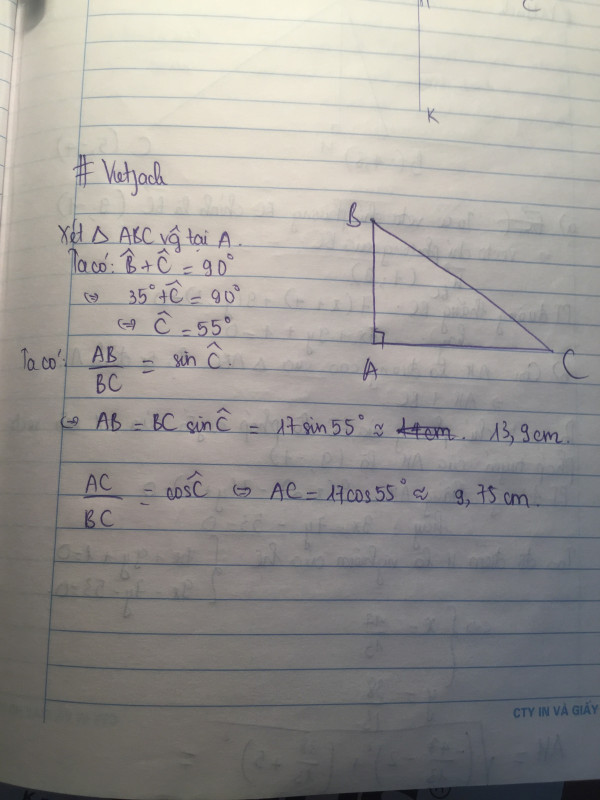 K
C
# Vietjack
Xét Δ ABC vĝ tại A.
Ta có: B̂ + Ĉ = 90°
⇔ 35° + Ĉ = 90°
⇔ Ĉ = 55°
Ta có: AB/BC = sin Ĉ.
⇔ AB = BC sin Ĉ = 17 sin 55° ≈ 13,9 cm.
AC/BC = cos Ĉ ⇔ AC = 17 cos 55° ≈ 9,75 cm.
B
A
C
CTY IN VÀ GIẤY